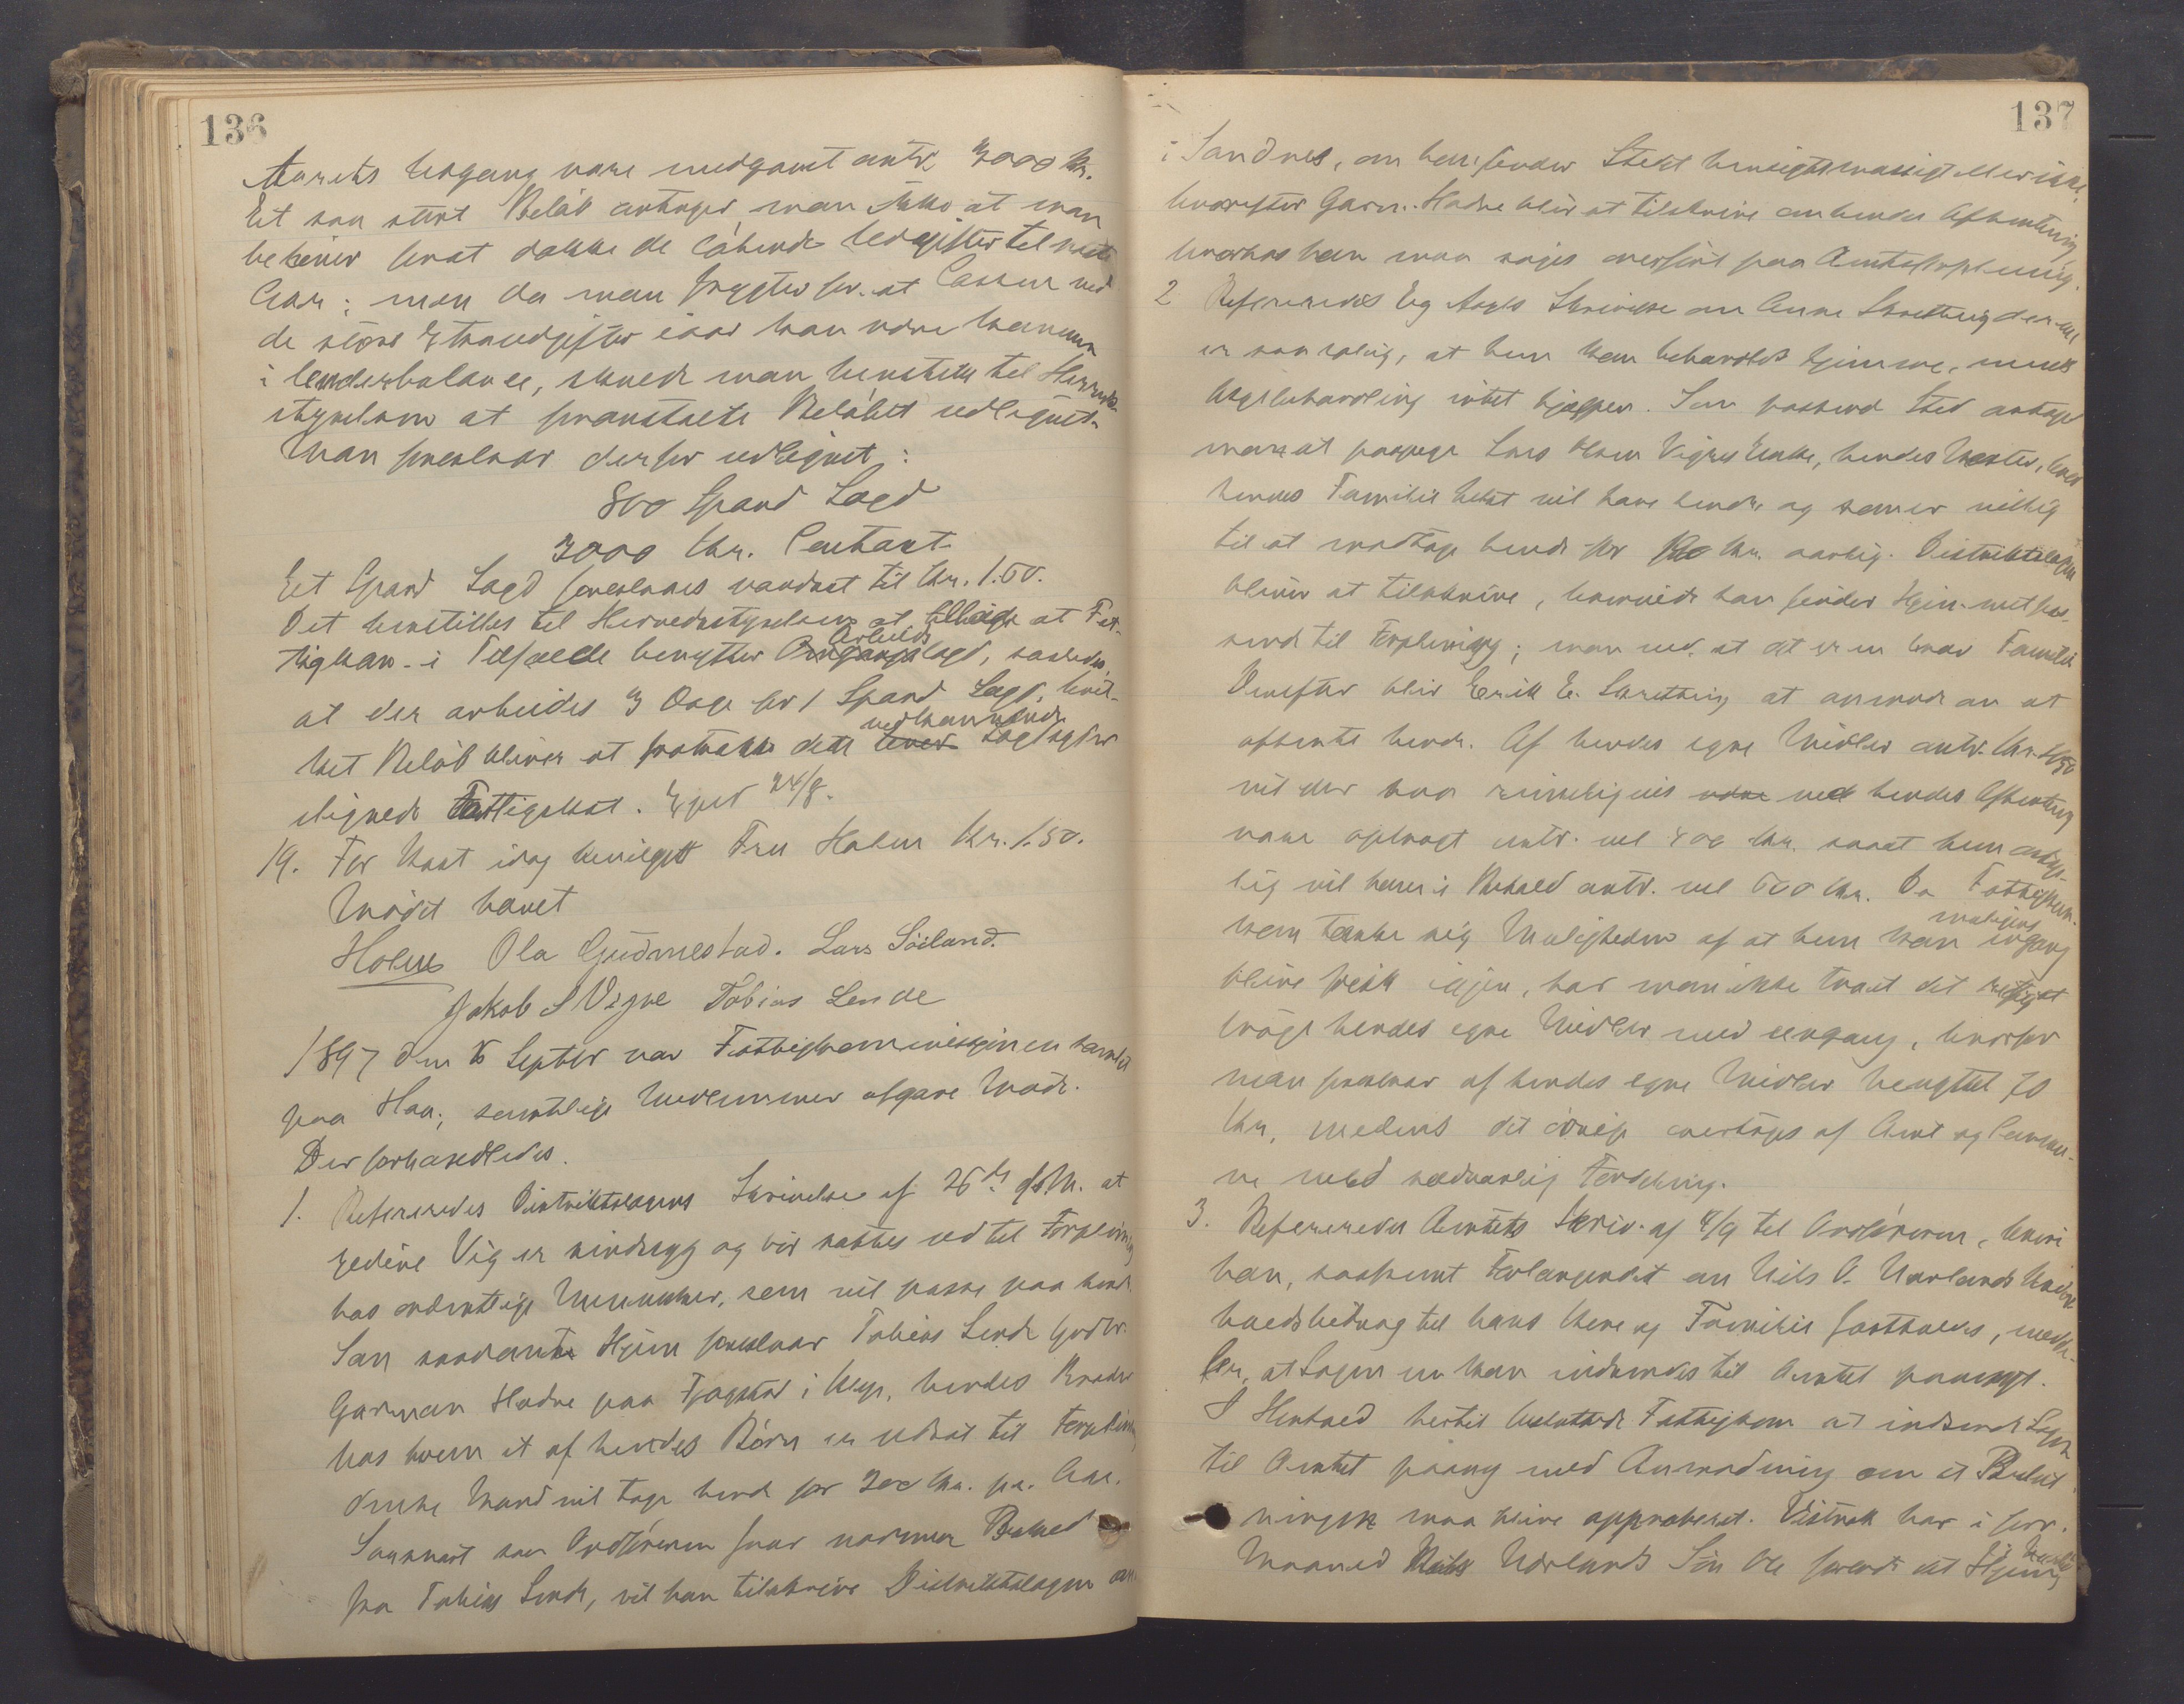 136
Aarets Udgang være medgaaet antl. 3000 Kr.
Et saa stort Beløb antager man ikke at man
behøver forat dække de løbende Udgifter til næste
Aar; men da man frygter for at Cassen ved
de store Extraudgifter iaar kan være kommen
i Underbalance, skulde man henstille til Herreds-
styrelsen at foranstalte Beløbet udlignet.
Man foreslaar derfor udlignet:
800 Spand Lægd
3000 Kr. Contant
Et Spand Lægd foreslaaes vurderet til Kr. 1.50.
Det henstilles til Herredsstyrelsen at tillade at Fat-
tigkom. i Tilfælde benytter Omgangslægd, saaledes
Arbeids
at der arbeides 3 Dage for 1 Spand Lægd, hvil-
ket Beløb bliver at fratrække dette
vedkommende
lignede Fattigskat. Exped 24/8.
19. For Kost idag bevilget Fru Holm Kr. 1.50.
Mødet hævet
Holm Ola Gudmestad. Lars Söiland.
Jakob S Vigre Tobias Lende
1897 den Septbr var Fattigkommissionen samlet
paa Haa; samtlige Medlemmer afgave Møde.
Der forhandledes.
1. Refereredes Distriktslægens Skrivelse af 26de f.M. at
Vig er sindssyg og bør sættes ud til Forpleining
hos ordentlige Mennesker, som vil passe paa hende
Som saadant Hjem foreslaar Tobias Lende Gaardbr.
Garman Hadne paa Fjogstad i Klep, hendes Broder
hos hvem et af hendes Børn er udsat til Forpleining
denne Mand vil tage hende for 200 Kr. pr. Aar.
Saasnart som Ordføreren faar nærmere Besked
fra Tobias Lende, vil han tilskrive Distriktslægen om
137
i Sandnes, om han finder Stedet hensigtsmæssigt eller ikke,
hvorefter Garm. Hadne blir at tilskrive om hendes Afhentning
hvorhos hun maa søges overført paa Amtsforpleining.
2 Refereredes Eg Asyls Skrivelse om Anne Skretting der nu
er saa rolig, at hun kan behandles hjemme, mens
Asylbehandling intet hjælper. Som passende Sted antager
man at paapege Lars Olsen Vigres Enke, hendes Moster, hvor
hendes Familie helst vil have hende og som er villig
til at modtage hende for Kr. aarlig. Distriktslægen
bliver at tilskrive, hvorvidt han finder Hjemmet pas-
sende til Forpleining; man ved at det er en brav Familie
Derefter blir Erik E. Skretting at anmode om at
afhente hende. Af hendes egne Midler antl. Kr.
vil der saa rimeligvis være ved hendes Afhentning
være opbragt antl. vel 400 Kr. saaat hun
lig vil have i Behold antl. vel 600 Kr. Da Fattigkom.
kan tænke sig Muligheden af at hun kan engang
muligens
blive frisk igjen, har man ikke troet det rigtigt at
bruge hendes egne Midler med engang, hvorfor
man foreslaar af hendes egne Midler benyttet 70
Kr, medens det øvrige overtages af Amt og Commu-
ne med sædvanlig Fordeling.
3. Refereredes Amtets Skriv. af 4/9 til Ordføreren, hvori
han, saafremt Forlangendet om Nils O. Nærlands Under-
holdsbidrag til hans Kone og Familie fastholdes, medde-
ler, at Sagen nu kan indsendes til Amtet paanyt.
I Henhold hertil besluttede Fattigkom at indsende Sagen
til Amtet paany med Anmodning om at Beslut-
ningen maa blive approberet. Vistnok har i forr.
Maaned Nærlands Søn Ole forladt sit Hjem